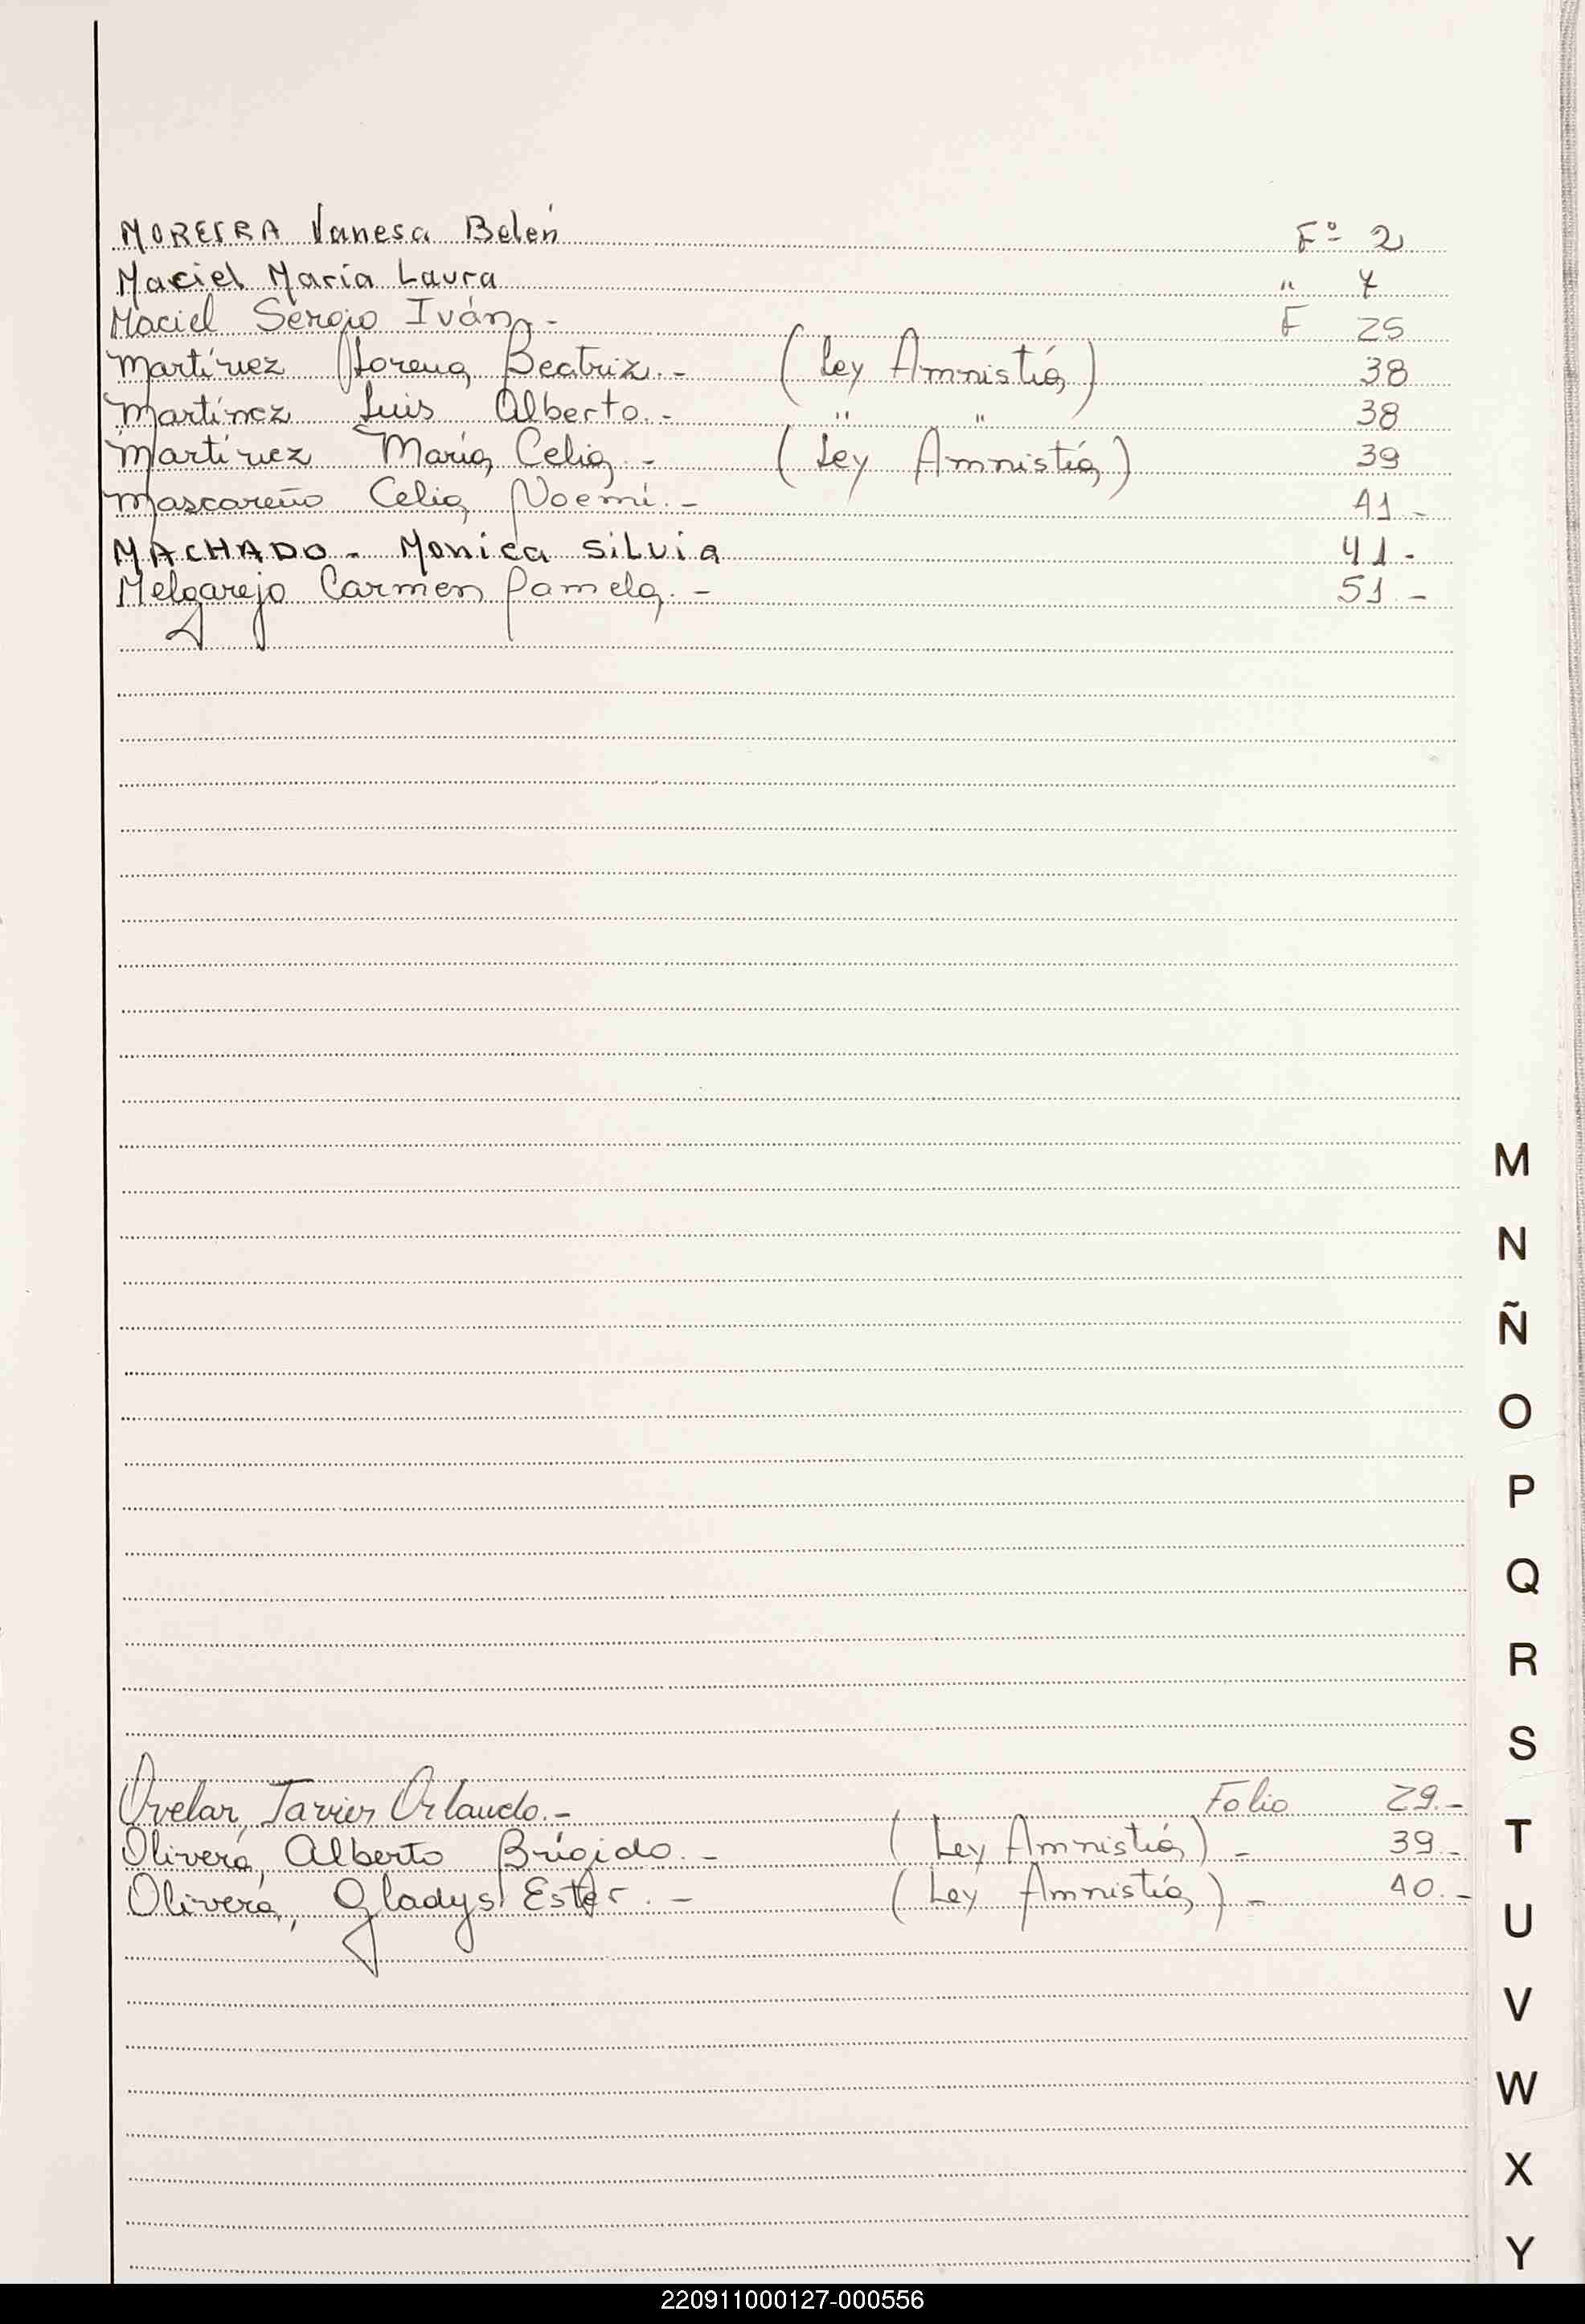 MOREIRA Vanesa Belén F° 2
Maciel María Laura " 7
Maciel Sergio Iván.- F 25
Martínez Lorena Beatriz.- (Ley Amnistía) 38
Martínez Luis Alberto.- " " 38
Martínez María Celia.- (Ley Amnistía) 39
Mascareño Celia Noemí.- 41.-
MACHADO - Monica Silvia 41.-
Melgarejo Carmen Pamela.- 51.-
M
N
Ñ
O
P
Q
R
S
Ovelar, Javier Orlando.- Folio 29.-
T
Olivera, Alberto Brígido.- (Ley Amnistía).- 39.-
Olivera, Gladys Ester.- (Ley Amnistía).- 40.-
U
V
W
X
Y
220911000127-000556